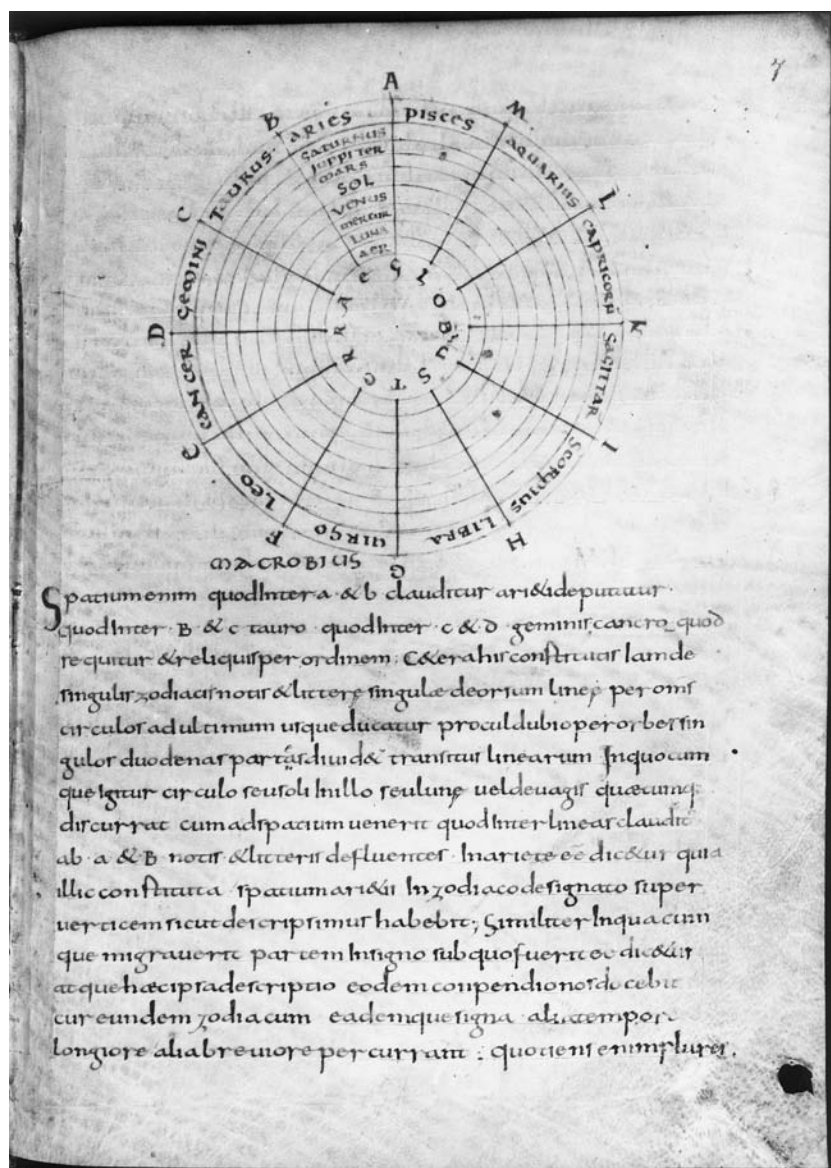 7
A
B
C
D
E
F
G
H
I
K
L
M
ARIES
TAURUS
GEMINI
CANCER
LEO
VIRGO
LIBRA
SCORPIUS
SAGITTAR
CAPRICORN
AQUARIUS
PISCES
SATURNUS
JUPPITER
MARS
SOL
VENUS
MERCUR
LUNA
AER
GLOBUS TERRAE
MACROBIUS
Spatium enim quod Inter a & b clauditur ari&i deputatur.
quod Inter B & c tauro quod Inter c & d geminis, cancro quod
sequitur & reliquis per ordinem; C&era his constitutis Iam de
singulis zodiaci notis & litteræ singulæ deorsum lineæ per oms
circulos ad ultimum usque ducatur procul dubio per orbes sin
gulos duodenas partes divid& transitus linearum Inquocum
que Igitur circulo seu sol Inillo seu lunæ vel de vagis quæcumq;
discurrat cum ad spatium venerit quod Inter lineas claudit
ab a & B notis & litteris defluentes Inariete ee dic&ur quia
illic constituta spatium ari&is Inzodiaco designato super
verticem sicut descripsimus habebit; Similiter Inquacum
que migraverit partem Insigno sub quo fuerit ee dic&ur
atque hæc ipsa descriptio eodem conpendio nos docebit
cur eundem zodiacum eademque signa alia tempore
longiore alia breviore percurrant; quotiens enim plures